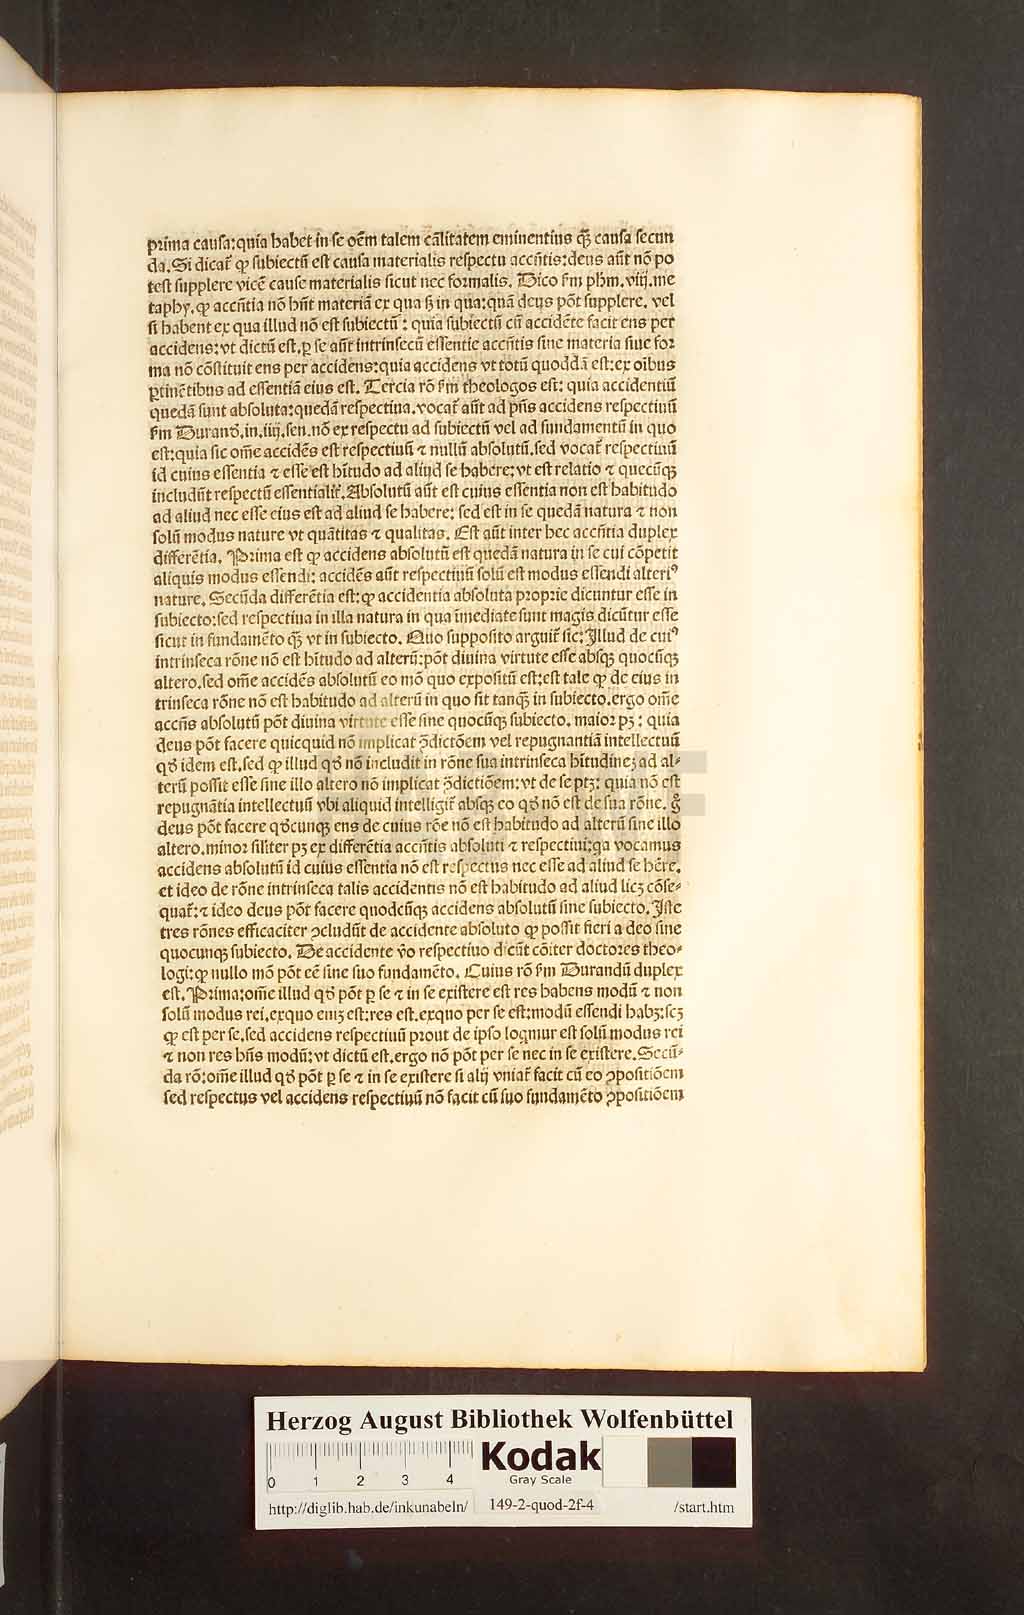 prima causa:quia habet in se oēm talem cālitatem eminentius q̄ꝫ causa secun
da.Si dicat̄ ꝙ subiectū est causa materialis respectu accn̄tis:deus aūt nō po
test supplere vicē cause materialis sicut nec formalis. Dico ẜm ph̄m.viij.me
taphy.ꝙ accn̄tia nō hn̄t materiā ex qua ſꝫ in qua:quā deus pōt supplere. vel
si habent ex qua illud nō est subiectū : quia subiectū cū accidēte facit ens per
accidens:vt dictū est.ꝑ se aūt intrinsecū essentie accn̄tis siue materia siue for
ma nō cōstituit ens per accidens:quia accidens vt totū quoddā est:ex oibus
ꝑtinētibus ad essentiā eius est. Tercia rō ẜm theologos est: quia accidentiū
quedā sunt absoluta:quedā respectiua.vocat̄ aūt ad pn̄s accidens respectiuū
ẜm Durand̄.in.iiij.sen.nō ex respectu ad subiectū vel ad fundamentū in quo
est:quia sic om̄e accidēs est respectiuū ⁊ nullū absolutū.sed vocat̄ respectiuū
id cuius essentia ⁊ esse est h̄itudo ad aliud se habere:vt est relatio ⁊ quecūqꝫ
includūt respectū essentialit̄.Absolutū aūt est cuius essentia non est habitudo
ad aliud nec esse eius est ad aliud se habere: sed est in se quedā natura ⁊ non
solū modus nature vt quātitas ⁊ qualitas. Est aūt inter hec accn̄tia duplex
differētia. Prima est ꝙ accidens absolutū est quedā natura in se cui cōpetit
aliquis modus essendi: accidēs aūt respectiuū solū est modus essendi alteriꝰ
nature. Secūda differētia est:ꝙ accidentia absoluta proprie dicuntur esse in
subiecto:sed respectiua in illa natura in qua īmediate sunt magis dicūtur esse
sicut in fundamēto q̄ꝫ vt in subiecto. Quo supposito arguit̄ sic:Illud de cuiꝰ
intrinseca rōne nō est h̄itudo ad alterū:pōt diuina virtute esse absqꝫ quocūqꝫ
altero.sed om̄e accidēs absolutū eo mō quo expositū est:est tale ꝙ de eius in
trinseca rōne nō est habitudo ad alterū in quo sit tanq̄ꝫ in subiecto.ergo om̄e
accn̄s absolutū pōt diuina virtute esse sine quocūqꝫ subiecto. maior pꝫ: quia
deus pōt facere quicquid nō implicat ↄ̄dictōem vel repugnantiā intellectuū
qd̄ idem est.sed ꝙ illud qd̄ nō includit in rōne sua intrinseca h̄itudineꝫ ad al⸗
terū possit esse sine illo altero nō implicat ↄ̄dictiōem:vt de se ptꝫ: quia nō est
repugnātia intellectuū vbi aliquid intelligit̄ absqꝫ eo qd̄ nō est de sua rōne. g̊
deus pōt facere qd̄cunqꝫ ens de cuius rōe nō est habitudo ad alterū sine illo
altero.minor sil̄iter pꝫ ex differētia accn̄tis absoluti ⁊ respectiui:qa vocamus
accidens absolutū id cuius essentia nō est respectus nec esse ad aliud se hēre.
et ideo de rōne intrinseca talis accidentis nō est habitudo ad aliud licꝫ cōse⸗
quat̄:⁊ ideo deus pōt facere quodcūqꝫ accidens absolutū sine subiecto. Iste
tres rōnes efficaciter ↄcludūt de accidente absoluto ꝙ possit fieri a deo sine
quocunqꝫ subiecto. De accidente v̄o respectiuo dicūt cōiter doctores theo⸗
logi:ꝙ nullo mō pōt eē sine suo fundamēto. Cuius rō ẜm Durandū duplex
est. Prima:om̄e illud qd̄ pōt ꝑ se ⁊ in se existere est res habens modū ⁊ non
solū modus rei.exquo eniꝫ est:res est.exquo per se est:modū essendi habꝫ:scꝫ
ꝙ est per se.sed accidens respectiuū prout de ipso loqmur est solū modus rei
⁊ non res hn̄s modū:vt dictū est.ergo nō pōt per se nec in se existere.Secū⸗
da rō:om̄e illud qd̄ pōt ꝑ se ⁊ in se existere si alij vniat̄ facit cū eo ↄpositiōem
sed respectus vel accidens respectiuū nō facit cū suo fundamēto ↄpositiōem
Herzog August Bibliothek Wolfenbüttel
0 1 2 3 4
Kodak
Gray Scale
http://diglib.hab.de/inkunabeln/ 149-2-quod-2f-4 /start.htm